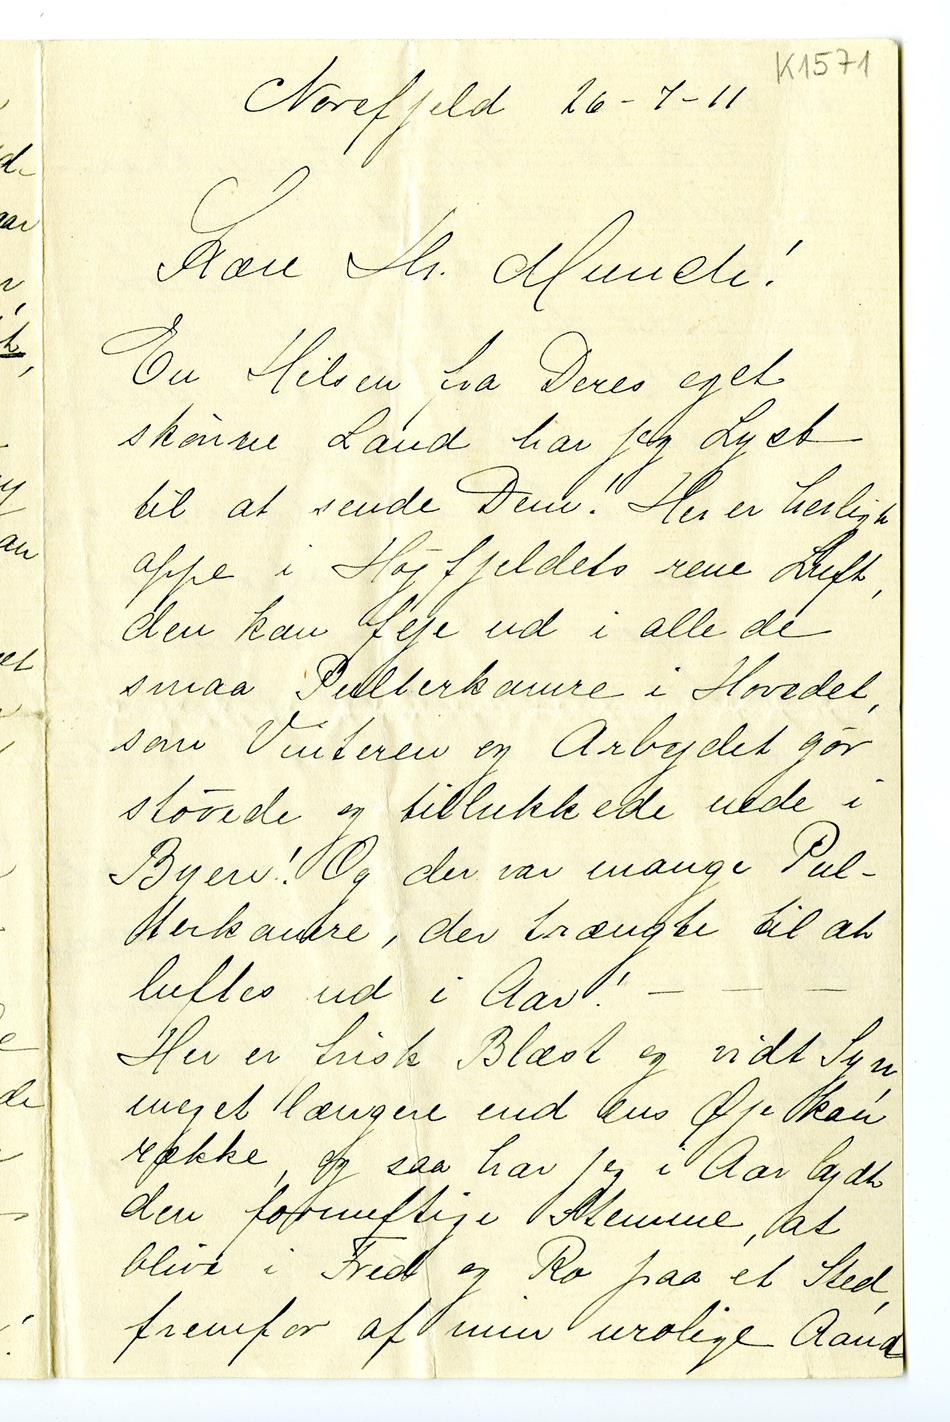 K1571
Norefjeld 26-7-11
Kære Hr. Munch!
En Hilsen fra Deres eget
skönne Land har jeg Lyst
til at sende Dem! Her er herligt
oppe i Højfjeldets rene Luft,
den kan feje ud i alle de
smaa Pulterkamre i Hovedet,
som Vinteren og Arbejdet gör
stövede og tillukkede nede i
Byen! Og der var mange Pul-
terkamre, der trængte til at
luftes ud i Aar! — — —
Her er frisk Blæst og vidt Syn
meget længere end ens Øje kan
række, og saa har jeg i Aar lydt
den fornuftige Stemme, at
blive i Fred og Ro paa et Sted,
fremfor af min urolige Aand